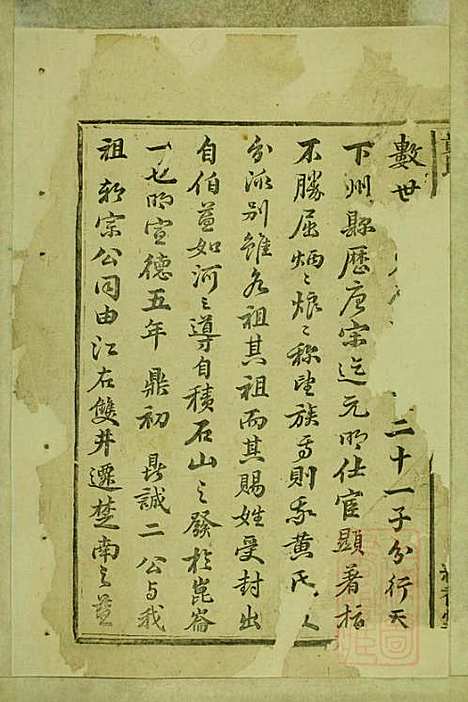 數世二十一子分行天
下州縣歷唐宋迄元明仕宦顯著指
不勝屈炳炳烺烺稱望族焉則我黃氏人
分派別雖各祖其祖而其賜姓受封出
自伯益如河之導自積石山之發於崑崙
一也明宣德五年鼎初鼎誠二公与我
祖朝宗公同由江右雙井遷楚南之益